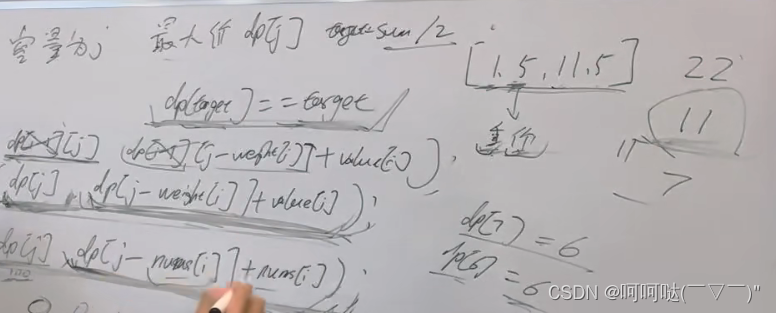 容量为j 最大价 dp[j] target=sum/2
[1.5,11.5] 22
dp[target]==target
11
重 价
11
7
dp[i-1][j] dp[i-1][j-weight[i]]+value[i])
dp[j] dp[j-weight[i]]+value[i]);
dp[7]=6
dp[6]=6
dp[j] dp[j-nums[i]]+nums[i]);
100
CSDN @呵呵哒(￣▽￣)"